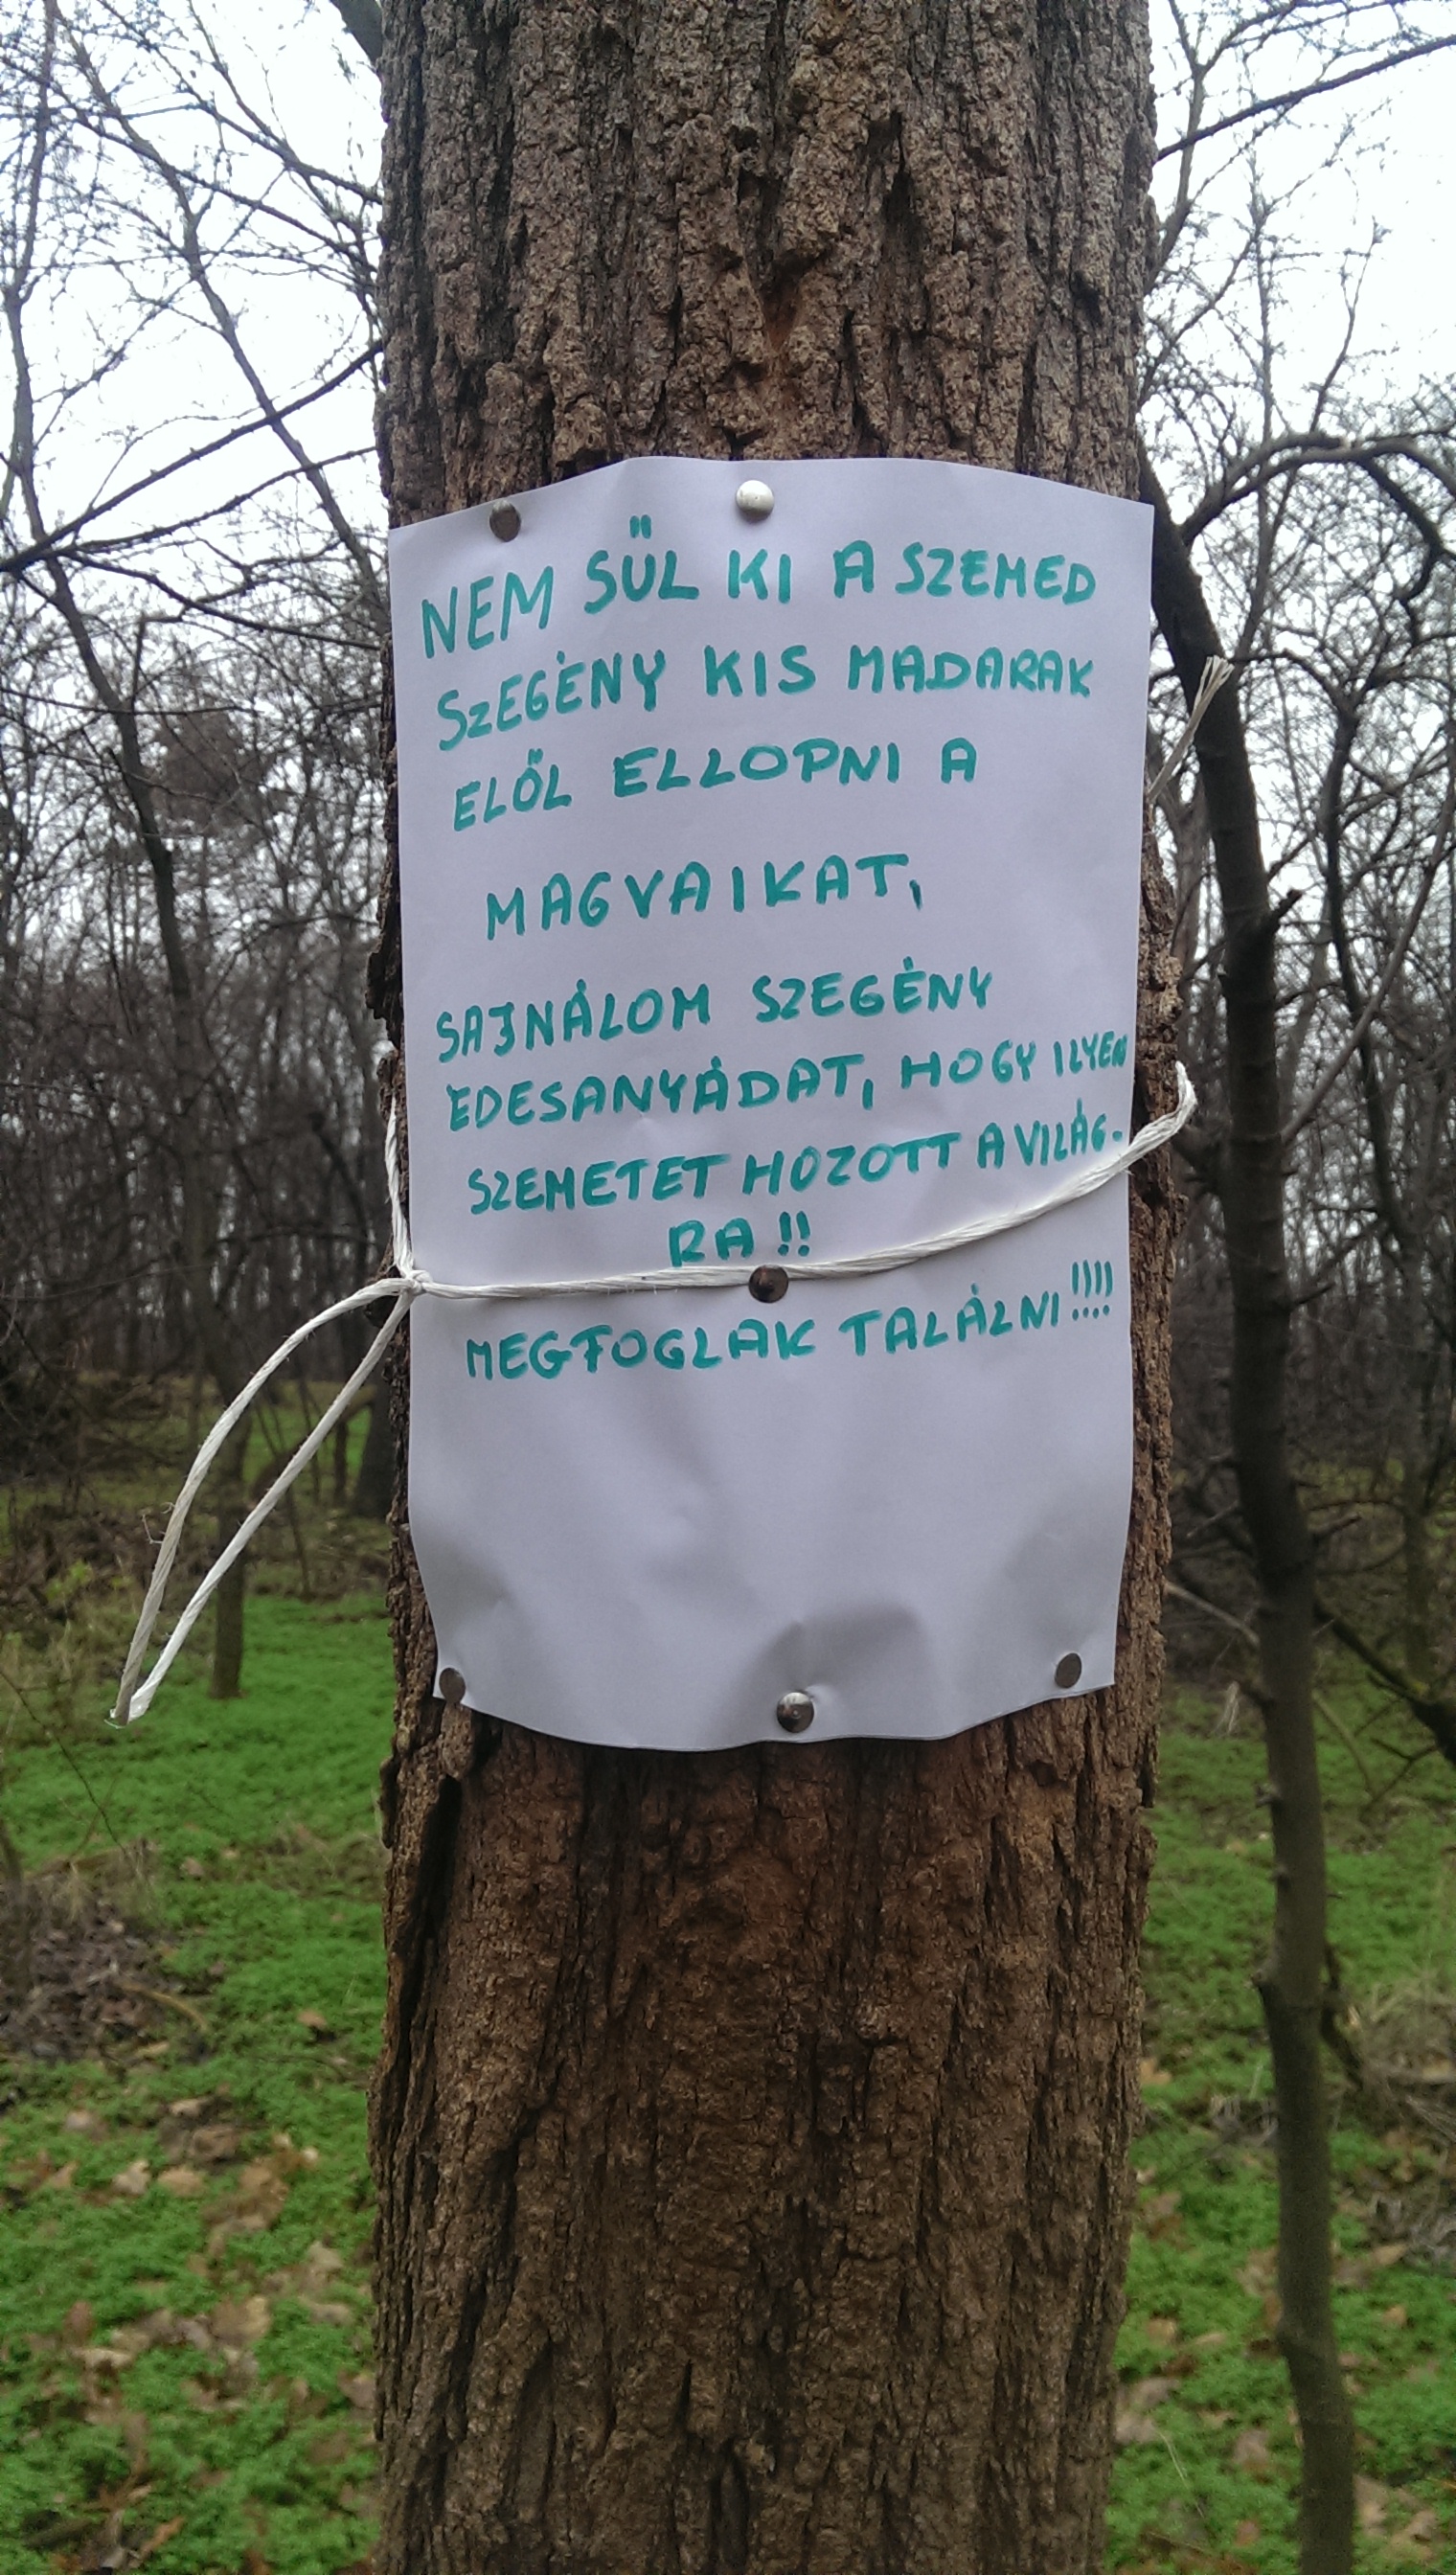 NEM SÜL KI A SZEMED
SZEGÉNY KIS MADARAK
ELŐL ELLOPNI A
MAGVAIKAT,
SAJNÁLOM SZEGÉNY
ÉDESANYÁDAT, HOGY ILYEN
SZEMETET HOZOTT A VILÁG-
RA!!
MEGFOGLAK TALÁLNI!!!!